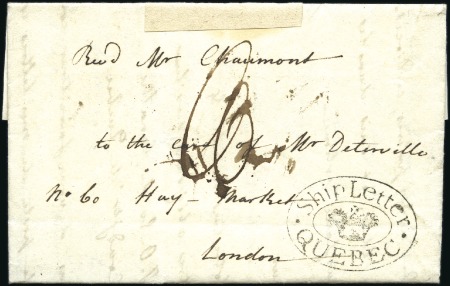 Revd Mr Chaumont
6
to the care of Mr Deterville
No. 60 Hay-Market
London
Ship Letter
QUEBEC